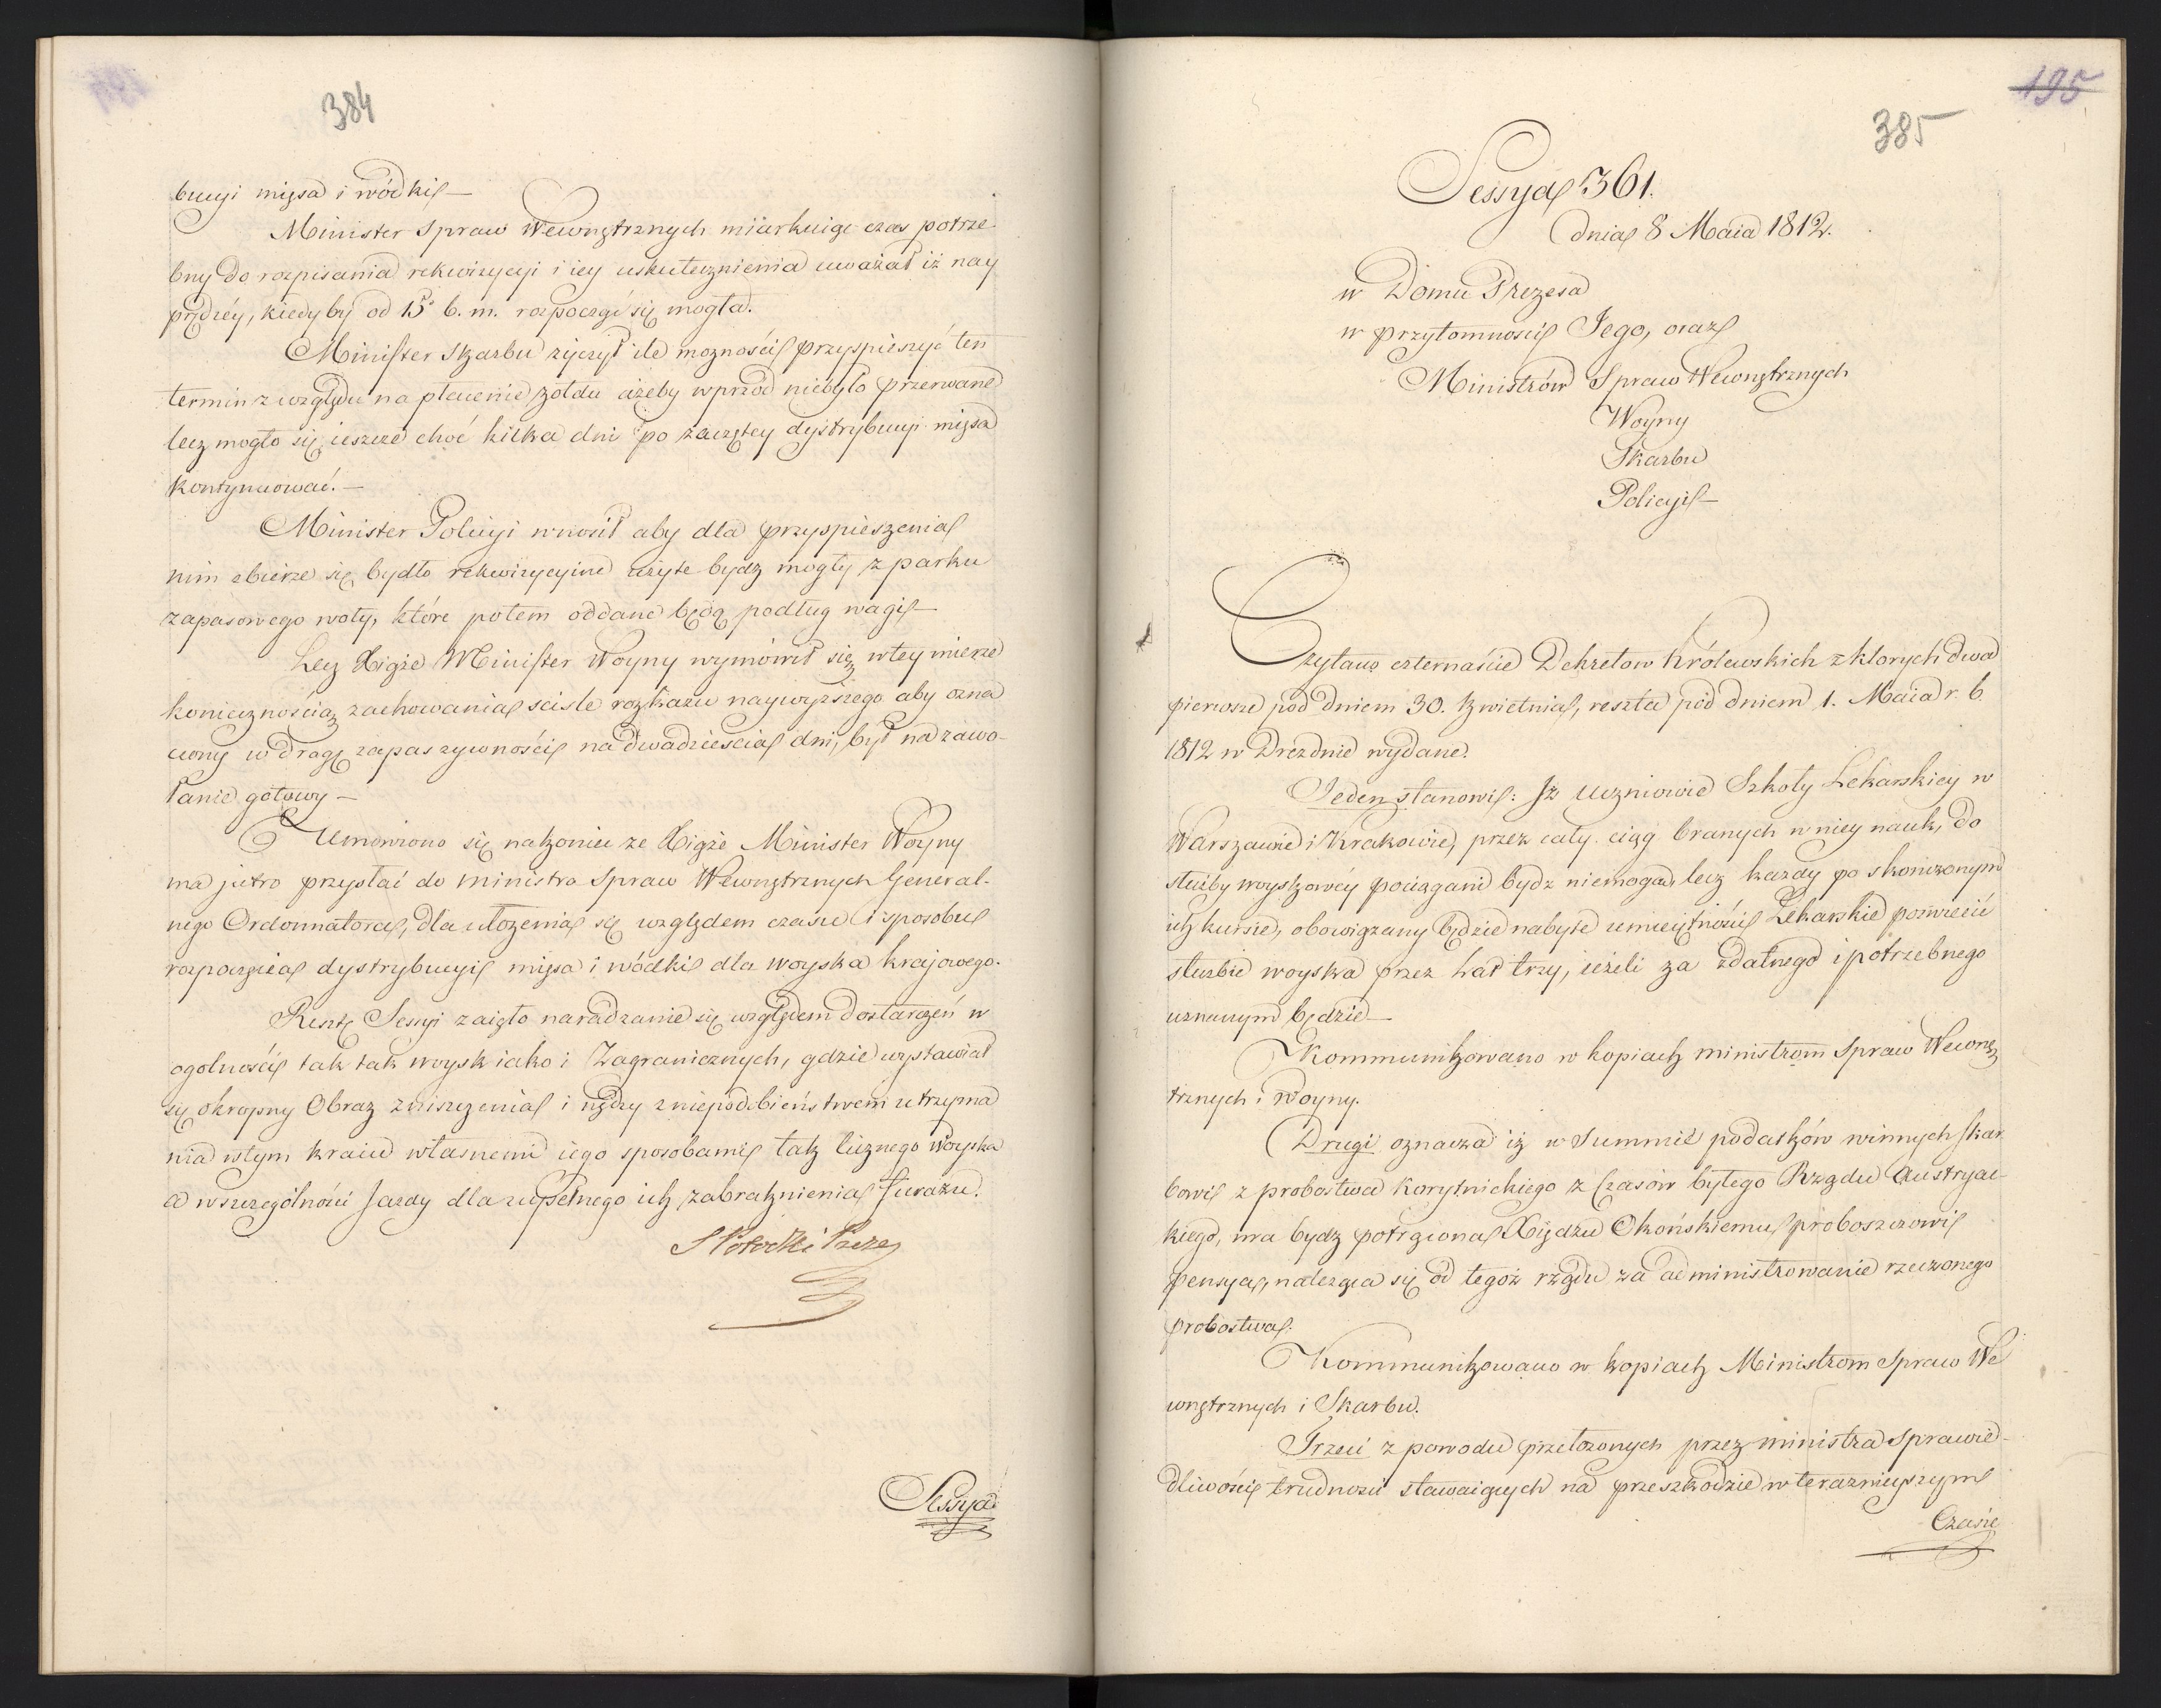 384
bucyi mięsa i wódki —
Minister Spraw Wewnętrznych miarkuiąc czas potrze-
bny do rozpisania rekwizycyi i iey uskutecznienia uważał iż nay
prędzéy, kiedyby od 15º b. m. rozpocząć się mogła.
Minister Skarbu życzył ile możności przyspieszyć ten
termin z względu na płacenie żołdu ażeby wprzód niebyło przerwane
lecz mogło się ieszcze choć kilka dni po zaczętey dystrybucyi mięsa
kontynuować. —
Minister Policyi wnosił aby dla przyspieszenia
nim zbierze się bydło rekwizycyine użyte bydź mogły z parku
zapasowego woły, które potem oddane będą podług wagi —
Lecz Xiąże Minister Woyny wymówił się w tey mierze
koniecznością zachowania scisle rozkazu naywyższego aby ozna
czony w drogę zapas żywności na dwadzieścia dni, był na zawo-
łanie gotowy —
Umówiono się nakoniec że Xiąże Minister Woyny
ma jutro przysłać do Ministra Spraw Wewnętrznych General-
nego Ordonnatora, dla ułożenia się względem czasu i sposobu
rozpoczęcia dystrybucyi mięsa i wódki dla woyska krajowego.
Resztę Sessyi zaięło naradzanie się względem dostarczeń w
ogolności tak tak woysk iako i Zagranicznych, gdzie wystawiał
się okropny Obraz zniszczenia i nędzy z niepodobieństwem utrzyma
nia w tym kraiu własnemi iego sposobami tak licznego Woyska
a w szczególności Jazdy dla zupełnego ich zabraknienia furażu.
S Potocki Prezes
Sessya
195
385
Sessya 361.
dnia 8 Maia 1812.
w Domu Prezesa
w przytomności Jego, oraz
Ministrów Spraw Wewnętrznych
Woyny
Skarbu
Policyi —
Czytano czternaście Dekretow Królewskich z ktorych dwa
pierwsze pod dniem 30. Kwietnia, reszta pod dniem 1. Maia r. b.
1812 w Dreznie wydane.
Jeden stanowi: Iż Uczniowie Szkoły Lekarskiey w
Warszawie i Krakowie, przez cały ciąg branych w niey nauk, do
służby woyskowéy pociągani bydz niemogą, lecz kazdy po skończonym
ich kursie, obowiązany będzie nabyte umieiętności Lekarskie poświęcić
służbie woyska przez lat trzy, ieżeli za zdatnego i potrzebnego
uznanym będzie —
Kommunikowano w kopiach ministrom Spraw Wewnę
trznych i Woyny.
Drugi oznacza iż w Summie podatków winnych skar
bowi z probostwa Korytnickiego z Czasów byłego Rządu Austryac-
kiego, ma bydz potrącona Xiędzu Okońskiemu proboszczowi
pensya, należąca się od tegoż rządu za administrowanie rzeczonego
probostwa.
Kommunikowano w kopiach Ministrom Spraw We
wnętrznych i Skarbu.
Trzeci z powodu przełozonych przez ministra Sprawie-
dliwości trudności stawaiących na przeszkodzie w teraznieyszym
Czasie